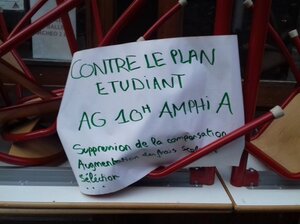 CONTRE LE PLAN
ETUDIANT
AG 10H AMPHI A
Suppression de la compensation
Augmentation des frais
Sélection
...